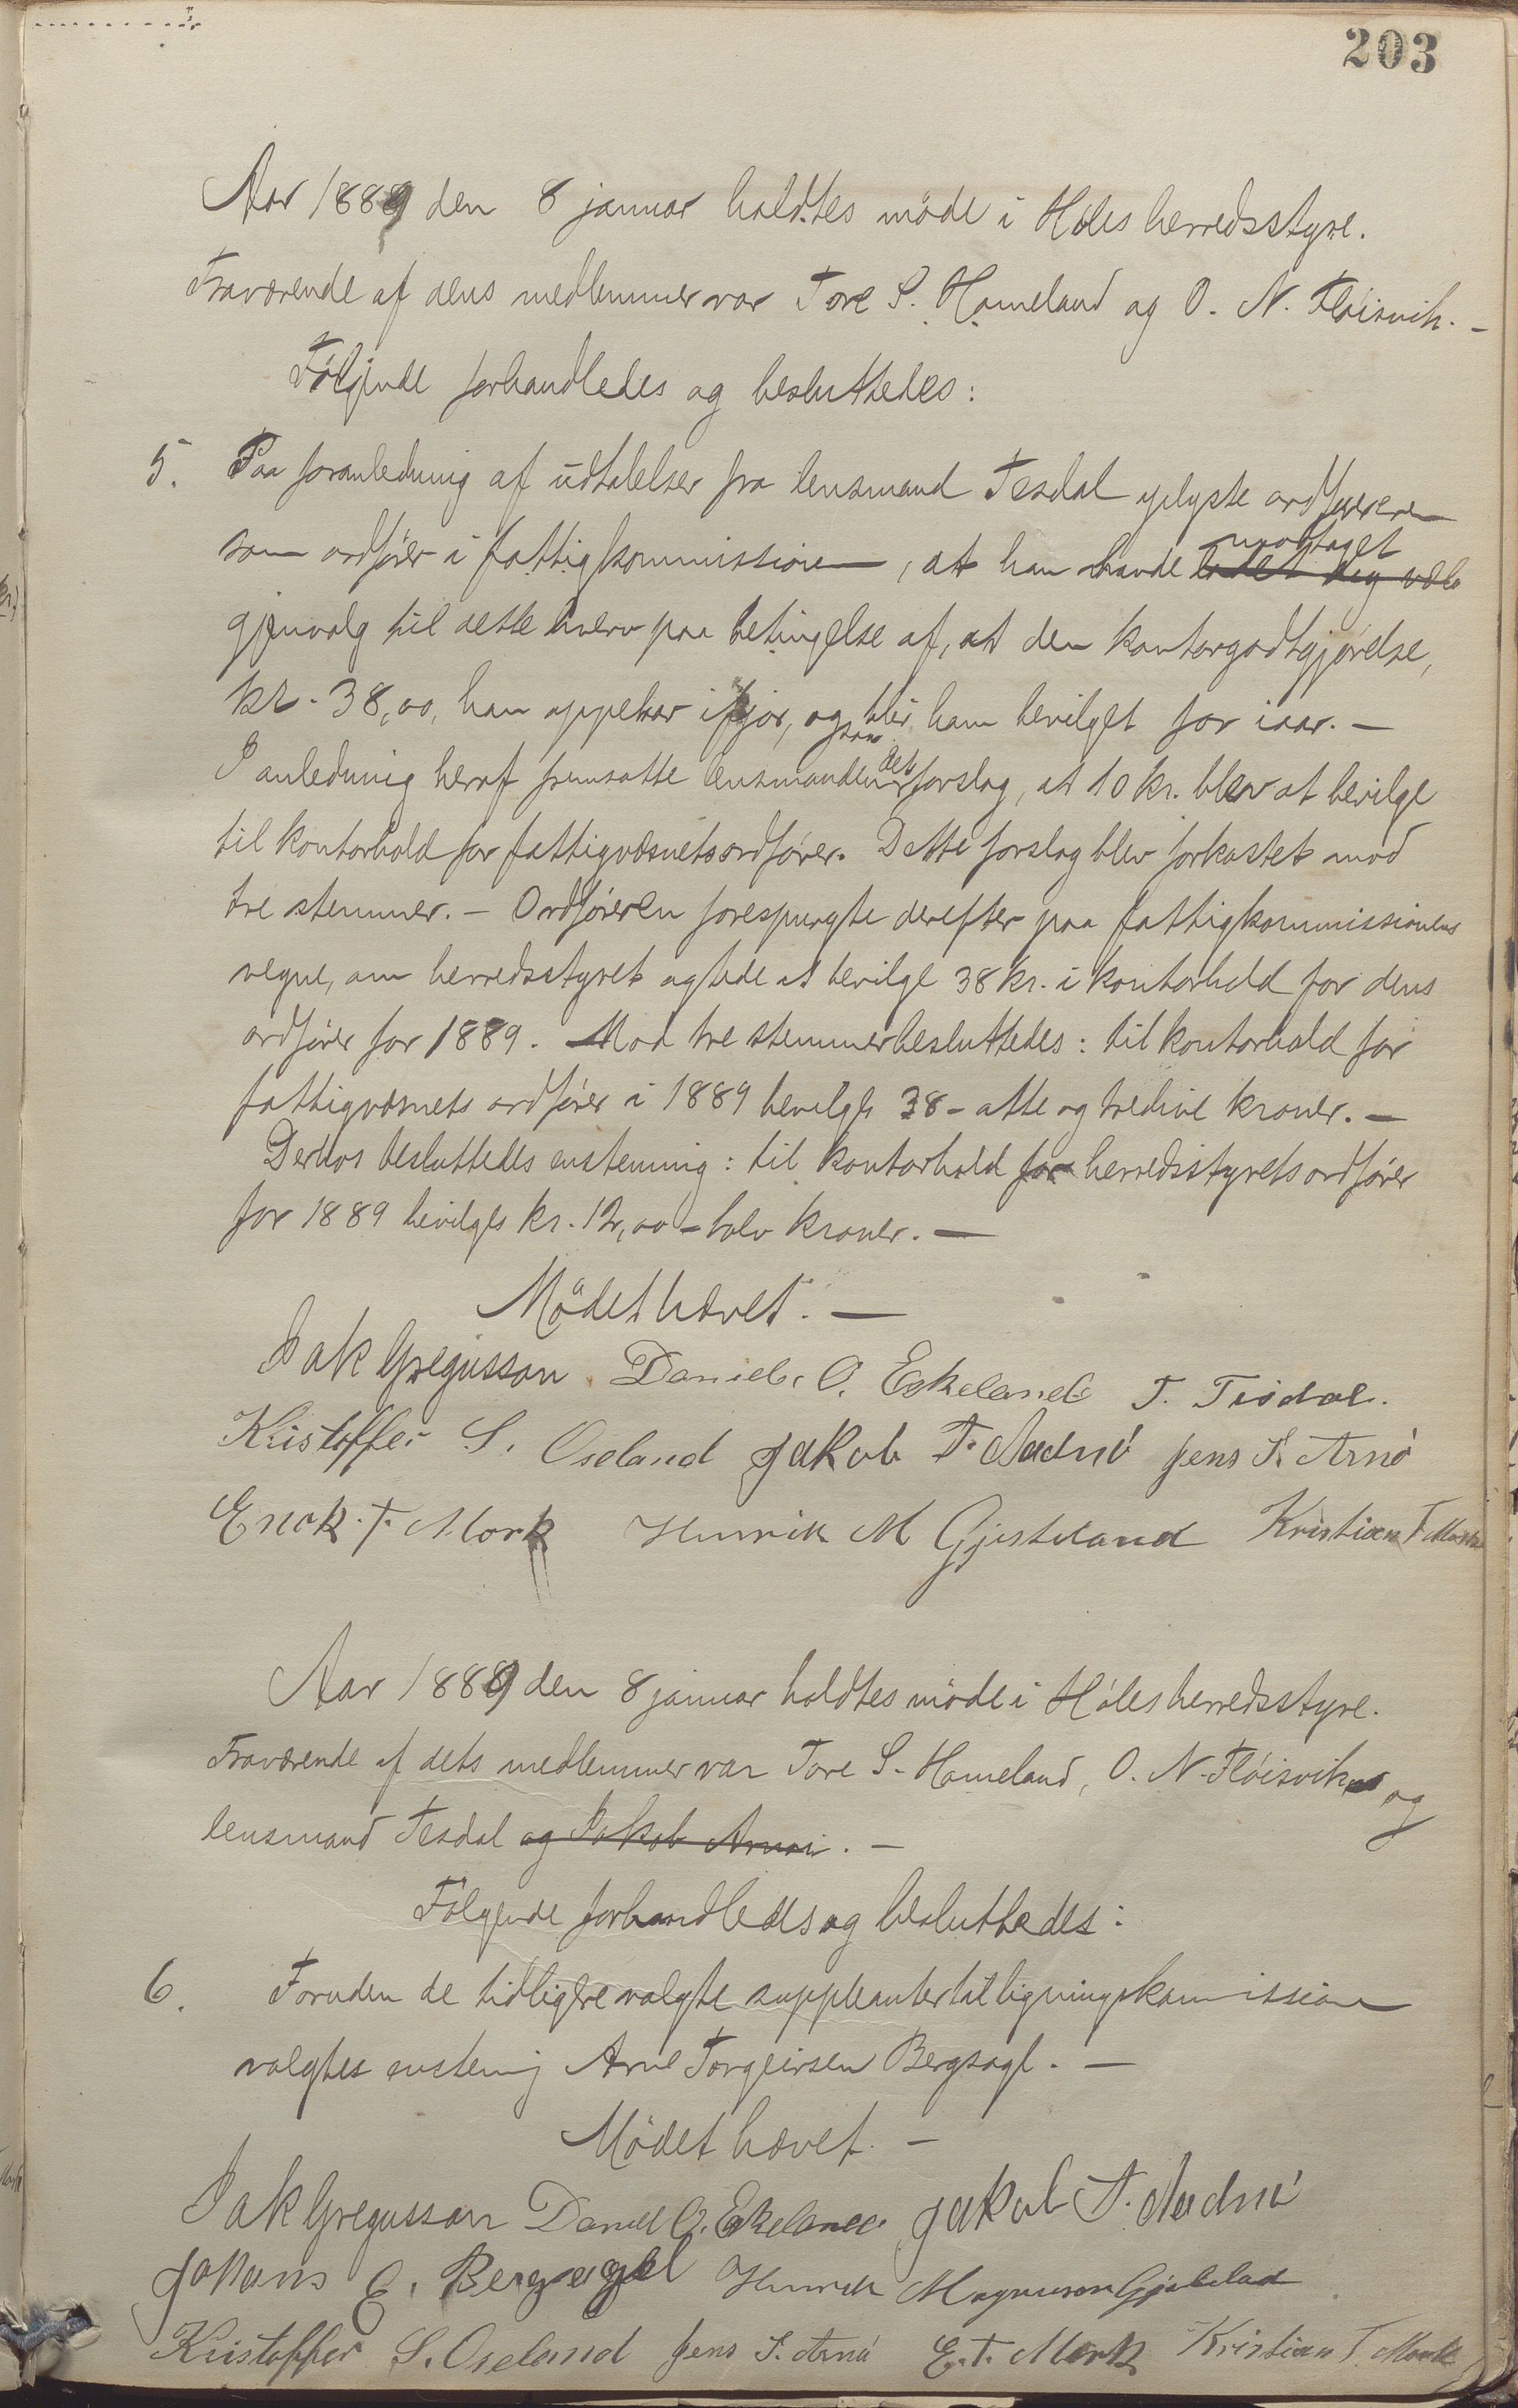 203
Aar 1889 den 8 januar holdtes møde i Høles herredsstyre.
Fraværende af dens medlemmer var Tore S. Homeland og O. N. Fløisvik. –
Følgende forhandledes og besluttedes:
5. Paa foranledning af udtalelser fra lensmand Tesdal oplyste ordføreren
som ordfører i fattigkommissionen, at han havde ladet sig vælg modtaget
gjenvalg til dette hverv paa betingelse af, at den kontorgodtgjørelse,
kr. 38,00, han oppebar ifjor, ogsaa blir ham bevilget for iaar. –
I anledning heraf fremsatte lensmanden det forslag, at 10 kr. blev at bevilge
til kontorhold for fattigvæsnets ordfører. Dette forslag blev forkastet mod
tre stemmer. – Ordføreren forespurgte derefter paa fattigkommissionens
vegne, om herredsstyret agtede at bevilge 38 kr. i kontorhold for dens
ordfører for 1889. Mod tre stemmer besluttedes: til kontorhold for
fattigvæsnets ordfører i 1889 bevilges 38 – otte og tredive kroner. –
Derhos besluttedes enstemmig: til kontorhold for herredsstyrets ordfører
for 1889 bevilges kr. 12,00 – tolv kroner. –
Mødet hævet. –
Jak Gregusson Daniel O. Eskeland T. Tisdal.
Kristoffer S. Oseland Jakob T. Aadnø Jens S. Arnø
Erick T. Mork Henrik M Gjesteland Kristian T Mork
Aar 1889 den 8 januar holdtes møde i Høles herredsstyre.
Fraværende af dets medlemmer var Tore S. Homeland, O. N. Fløisvik og
lensmand Tesdal og Jakob Arnøi. –
Følgende forhandledes og besluttedes:
6. Foruden de tidligere valgte suppleanter til ligningskommission
valgtes enstemig Arne Torgeirsen Bergsagel. –
Mødet hævet. –
Jak Gregusson Daniel O. Eskeland Jakob T. Aadnø
Johans E. Bergsagel Henrik Magnuson Gjesteland
Kristoffer S. Oseland Jens S. Arnø E. T. Mork Kristian T. Mork